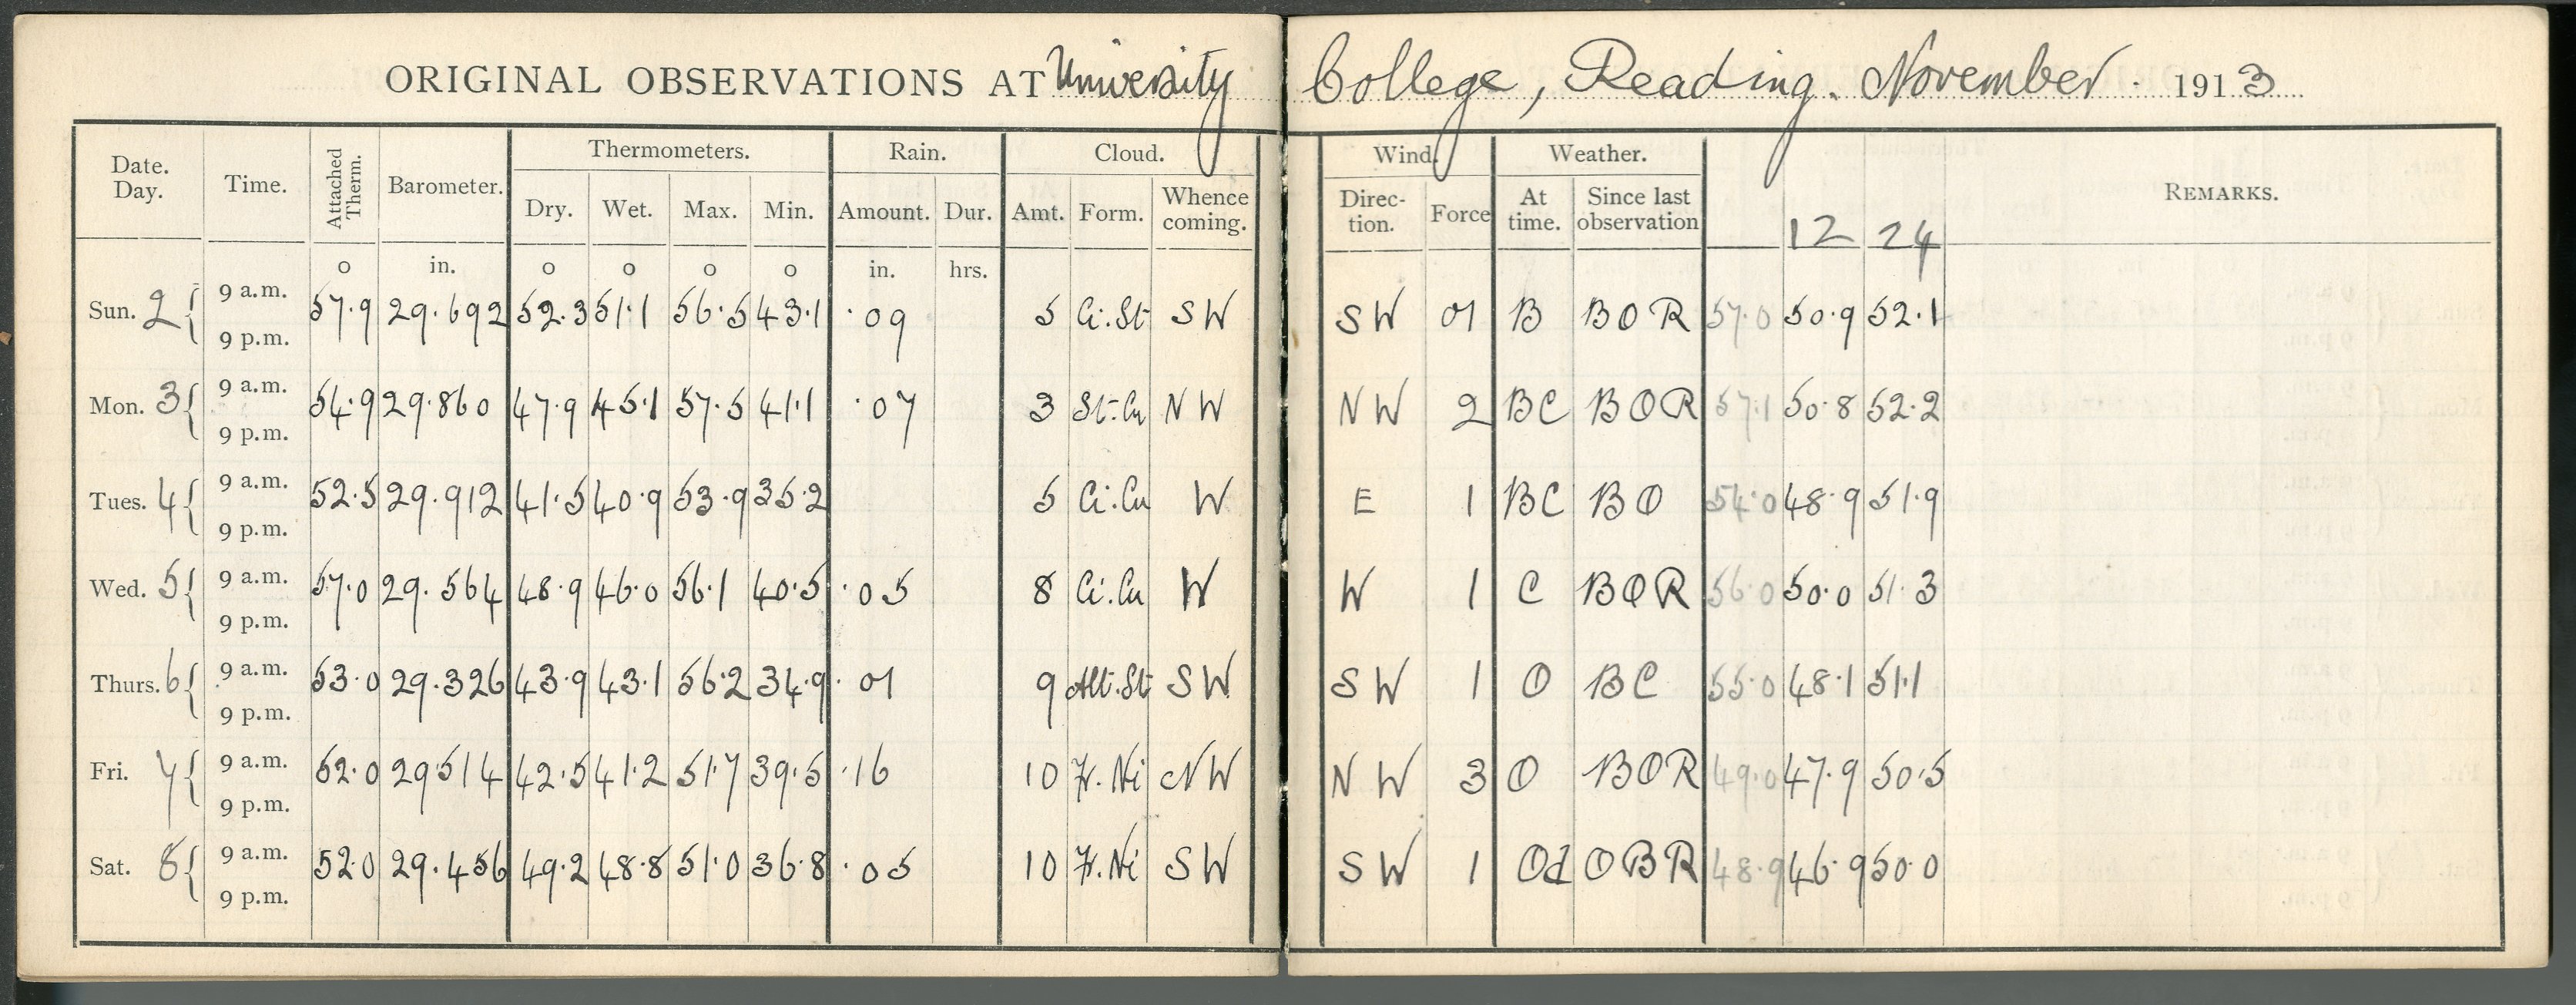 ORIGINAL OBSERVATIONS AT University College, Reading. November. 1913
Date. Day. Time. Attached Therm. Barometer. Thermometers. Rain. Cloud. Wind. Weather. REMARKS.
Dry. Wet. Max. Min. Amount. Dur. Amt. Form. Whence coming. Direction. Force At time. Since last observation 12 24
o in. o o o o in. hrs.
Sun. 2 { 9 a.m. 9 p.m. 57.9 29.692 52.3 51.1 56.5 43.1 .09 5 Ci.St SW SW 01 B BOR 57.0 50.9 52.1
Mon. 3 { 9 a.m. 9 p.m. 54.9 29.860 47.9 45.1 57.5 41.1 .07 3 St.Cu NW NW 2 BC BOR 57.1 50.8 52.2
Tues. 4 { 9 a.m. 9 p.m. 52.5 29.912 41.5 40.9 53.9 35.2 5 Ci.Cu W E 1 BC BO 54.0 48.9 51.9
Wed. 5 { 9 a.m. 9 p.m. 57.0 29.564 48.9 46.0 56.1 40.5 .05 8 Ci.Cu W W 1 C BOR 56.0 50.0 51.3
Thurs. 6 { 9 a.m. 9 p.m. 53.0 29.326 43.9 43.1 56.2 34.9 .01 9 Alt.St SW SW 1 O BC 55.0 48.1 51.1
Fri. 7 { 9 a.m. 9 p.m. 52.0 29.514 42.5 41.2 51.7 39.5 .16 10 Fr.Ni NW NW 3 O BOR 49.0 47.9 50.5
Sat. 8 { 9 a.m. 9 p.m. 52.0 29.456 49.2 48.8 51.0 36.8 .05 10 Fr.Ni SW SW 1 Od OBR 48.9 46.9 50.0